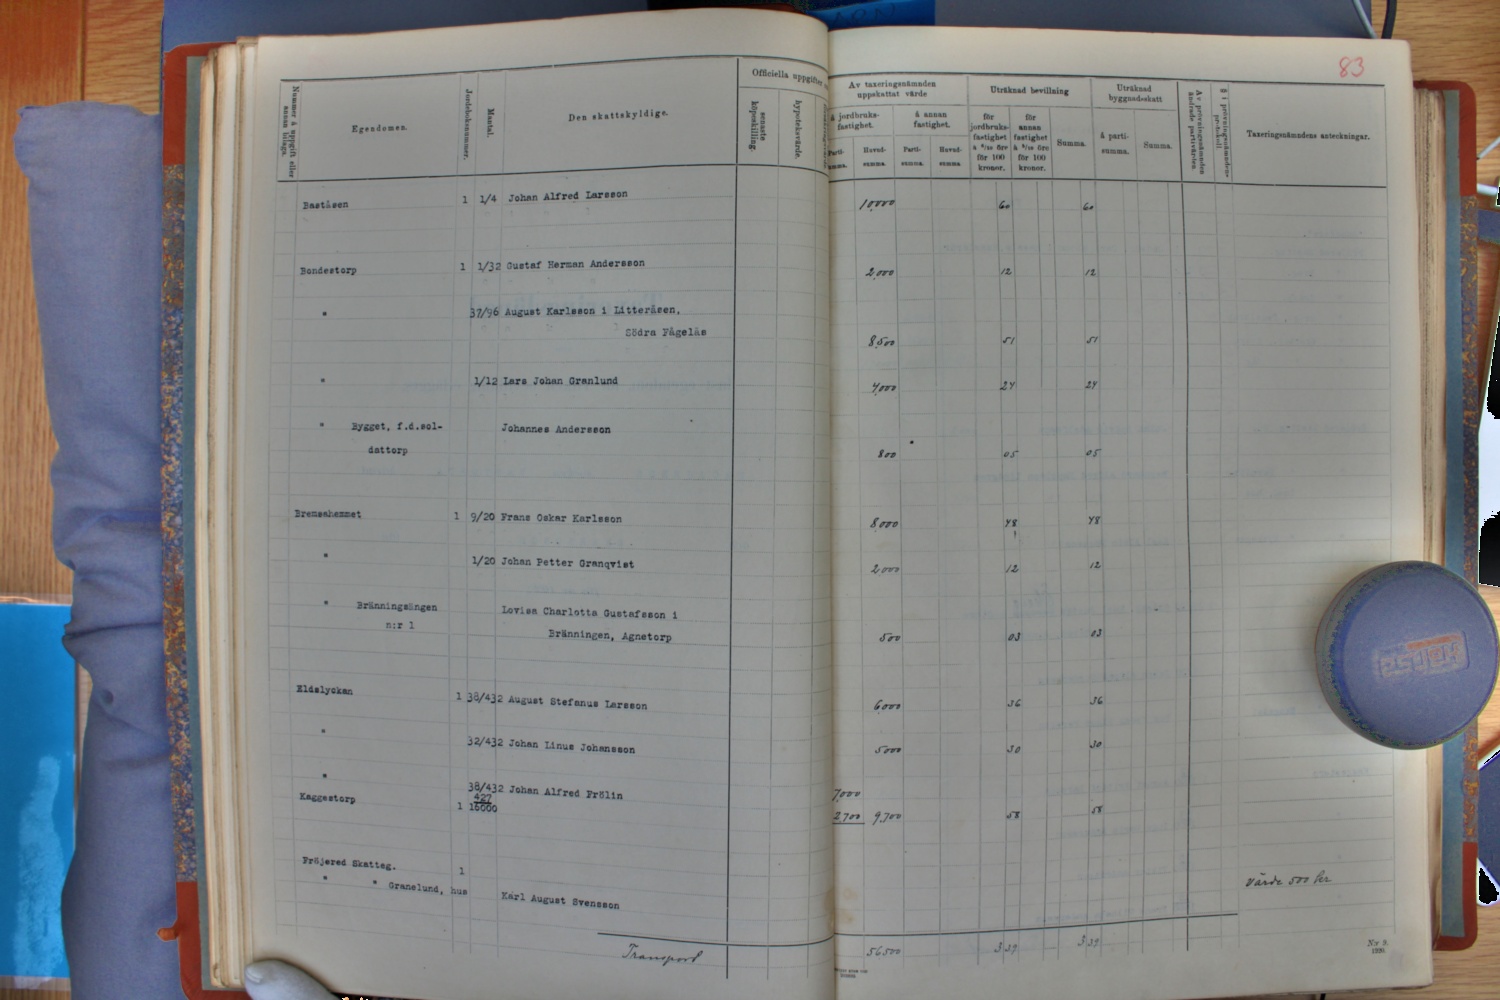 83
Nummer å uppgift eller annan bilaga.
Egendomen.
Jordeboksnummer.
Mantal.
Den skattskyldige.
Officiella uppgifter
senaste köpeskilling.
hypoteksvärde.
Av taxeringsnämnden uppskattat värde
å jordbruks-fastighet.
å annan fastighet.
Parti-summa.
Huvud-summa.
Parti-summa.
Huvud-summa.
Uträknad bevillning
för jordbruks-fastighet à 6/10 öre för 100 kronor.
för annan fastighet à 5/10 öre för 100 kronor.
Summa.
Uträknad byggnadsskatt
å parti-summa.
Summa.
Av prövningsnämnden ändrade partivärden.
§ i prövningsnämndens protokoll
Taxeringsnämndens anteckningar.
Baståsen 1 1/4 Johan Alfred Larsson 10,000 60 60
Bondestorp 1 1/32 Gustaf Herman Andersson 2,000 12 12
" 37/96 August Karlsson i Litteråsen,
Södra Fågelås 8,500 51 51
" 1/12 Lars Johan Granlund 4,000 24 24
" Bygget, f.d.sol- Johannes Andersson
dattorp 800 05 05
Bremsehemmet 1 9/20 Frans Oskar Karlsson 8,000 48 48
" 1/20 Johan Petter Granqvist 2,000 12 12
" Bränningsängen Lovisa Charlotta Gustafsson i
n:r 1 Bränningen, Agnetorp 500 03 03
Eldslyckan 1 38/432 August Stefanus Larsson 6,000 36 36
" 32/432 Johan Linus Johansson 5,000 30 30
" 38/432 Johan Alfred Frölin 7,000
Kaggestorp 1 427/16000 2,700 9,700 58 58
Fröjered Skatteg. 1
" " Granelund, hus Karl August Svensson Värde 500 kr
Transport 56,500 3 39 3 39
Nr 9.
1931.